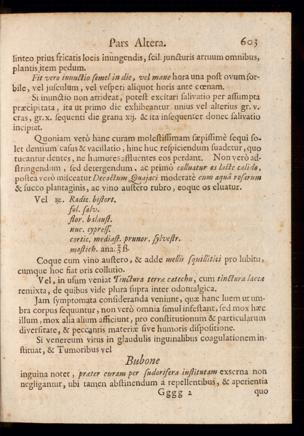 Pars Altera. 603
linteo prius fricatis locis inungendis, scil. juncturis artuum omnibus,
plantis item pedum.
Fit vero inunctio semel in die, vel mane hora una post ovum sor-
bile, vel jusculum, vel vesperi aliquot horis ante cœnam.
Si inunctio non arrideat, potest excitari salivatio per assumpta
præcipitata, ita ut primo die exhibeantur unius vel alterius gr. v.
cras, gr. x. sequenti die grana xij. & ita insequenter donec salivatio
incipiat.
Quoniam verò hanc curam molestissimam sæpissimè sequi so-
let dentium casus & vacillatio, hinc huc respiciendum suadetur, quo
tueantur dentes, ne humores affluentes eos perdant. Non verò ad-
stringendum, sed detergendum, ac primò colluatur os lacte calido,
postea verò misceatur Decoctum Quajaci moderatè cum aquâ rosarum
& succo plantaginis, ac vino austero rubro, eoque os eluatur.
Vel ℞. Radic. bistort.
fol. salv.
flor. balaust.
nuc. cypress.
cortic. mediast. prunor. sylvestr.
mastich. ana. ʒ ß.
Coque cum vino austero, & adde mellis squillitici pro lubitu,
cumque hoc fiat oris collutio.
Vel, in usum veniat Tinctura terræ catechu, cum tinctura lacca
remixta, de quibus vide plura supra inter odontalgica.
Jam symptomata consideranda veniunt, quæ hanc luem ut um-
bra corpus sequuntur, non verò omnia simul infestant, sed mox hæc
illum, mox alia alium afficiunt, pro constitutionum & particularum
diversitate, & peccantis materiæ sive humoris dispositione.
Si venereum virus in glandulis inguinalibus coagulationem in-
stituat, & Tumoribus vel
Bubone
inguina notet, præter curam per sudorifera institutam externa non
negligantur, ubi tamen abstinendum à repellentibus, & aperientia
Gggg 2 quo